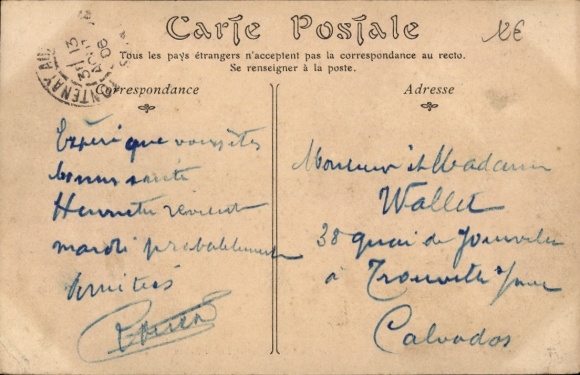 Carte Postale
12€
Tous les pays étrangers n'acceptent pas la correspondance au recto.
Se renseigner à la poste.
FONTENAY AUX
13
AOUT
06
Correspondance
Espère que vous êtes
bonne santé
Henriette revient
mardi probablement
Amitiés
Adresse
Monsieur et Madame
Wallet
38 quai de Joinville
à Trouville s/mer
Calvados